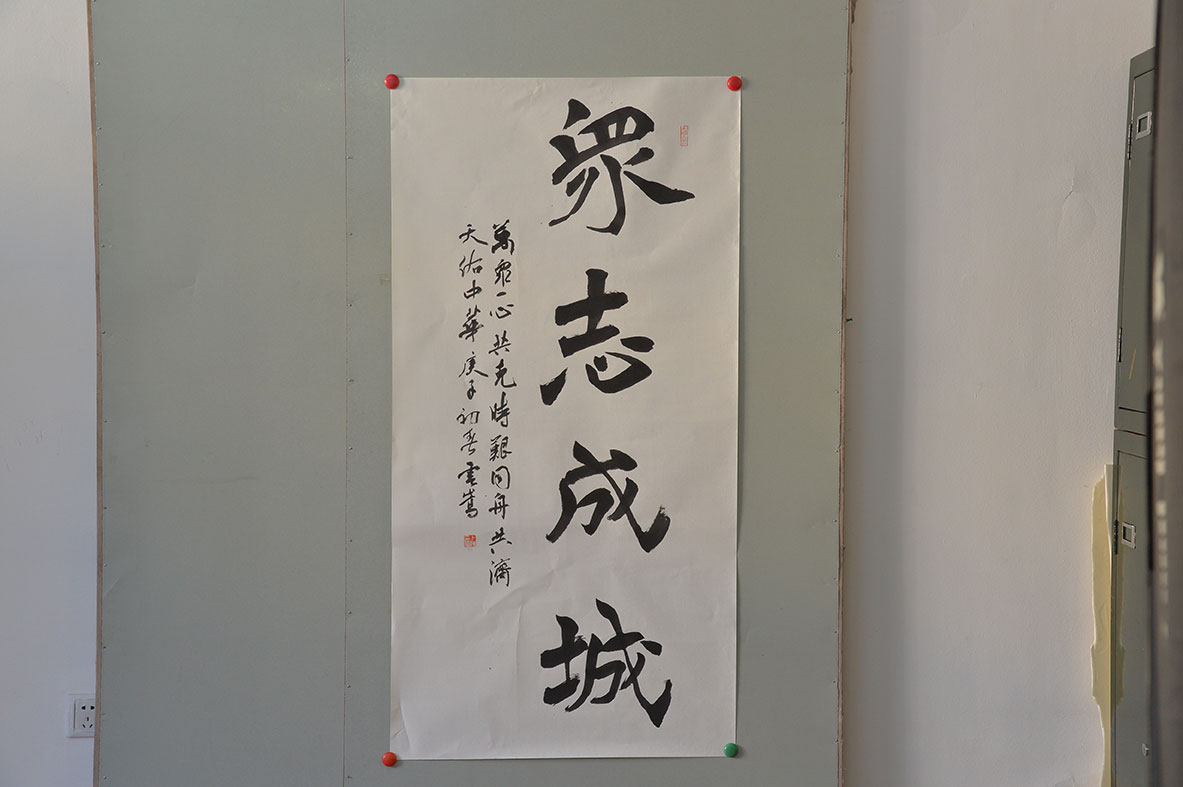 眾志成城
萬眾一心共克時艱同舟共濟
天佑中華庚子初春雲嵩